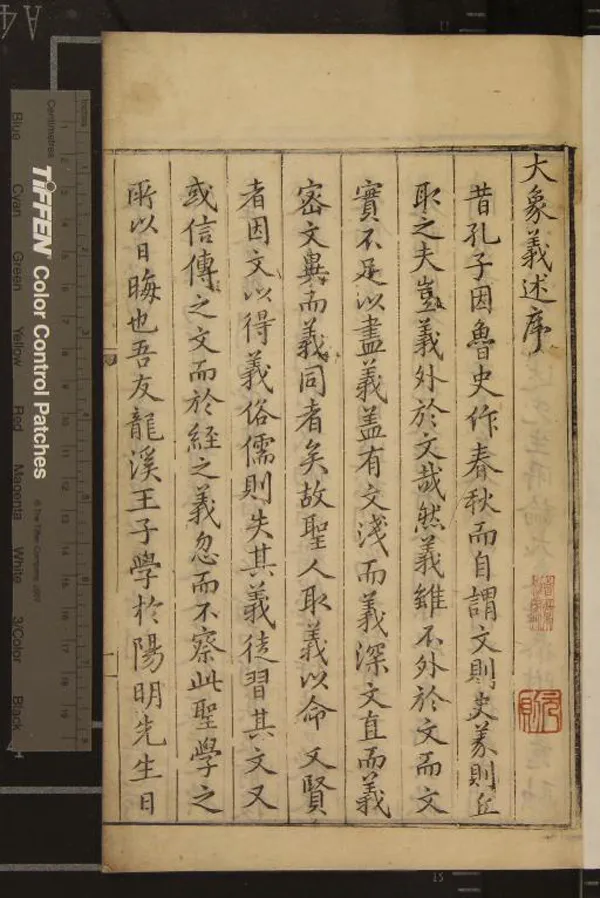 大象義述序
昔孔子因魯史作春秋而自謂文則史義則丘
取之夫豈義外於文哉然義雖不外於文而文
實不足以盡義蓋有文淺而義深文直而義
密文異而義同者矣故聖人取義以命文賢
者因文以得義俗儒則失其義徒習其文又
或信傳之文而於経之義忽而不察此聖學之
所以日晦也吾友龍溪王子學於陽明先生日
A4
Inches
Centimetres
TIFFEN Color Control Patches
© The Tiffen Company, 2007
Blue
Cyan
Green
Yellow
Red
Magenta
White
3/Color
Black
1
2
3
4
5
6
7
8
9
10
11
12
13
14
15
16
17
18
19
15